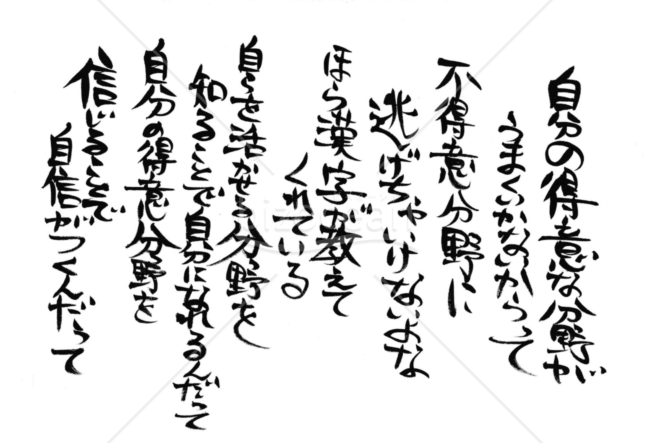 自分の得意な分野が
うまくいかないからって
不得意分野に
逃げちゃいけないよな
ほら漢字が教えて
くれている
自らを活かせる分野を
知ることで自分になれるんだって
自分の得意分野を
信じることで
自信がつくんだって